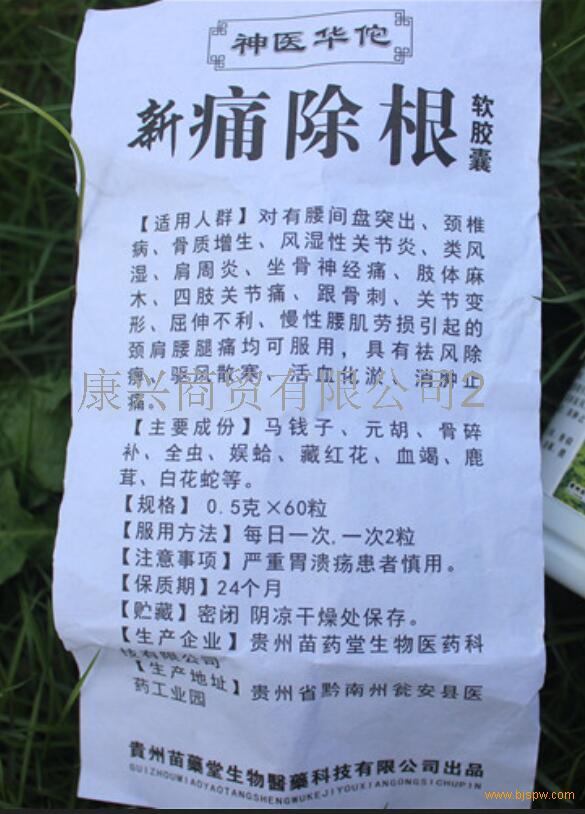 神医华佗
新痛除根
软胶囊
【适用人群】对有腰间盘突出、颈椎
病、骨质增生、风湿性关节炎、类风
湿、肩周炎、坐骨神经痛、肢体麻
木、四肢关节痛、跟骨刺、关节变
形、屈伸不利、慢性腰肌劳损引起的
颈肩腰腿痛均可服用,具有祛风除
痹、驱风散寒、活血化淤、消肿止
康兴商贸有限公司2
痛。
【主要成份】马钱子、元胡、骨碎
补、全虫、娱蛤、藏红花、血竭、鹿
茸、白花蛇等。
【规格】 0.5克×60粒
【服用方法】每日一次,一次2粒
【注意事项】严重胃溃疡患者慎用。
【保质期】24个月
【贮藏】密闭 阴凉干燥处保存。
【生产企业】贵州苗药堂生物医药科
技有限公司
【生产地址】贵州省黔南州瓮安县医
药工业园
貴州苗藥堂生物醫藥科技有限公司出品
GUIZHOUMIAOYAOTANGSHENGWUKEJIYOUXIANGONGSICHUPIN
www.bjspw.com